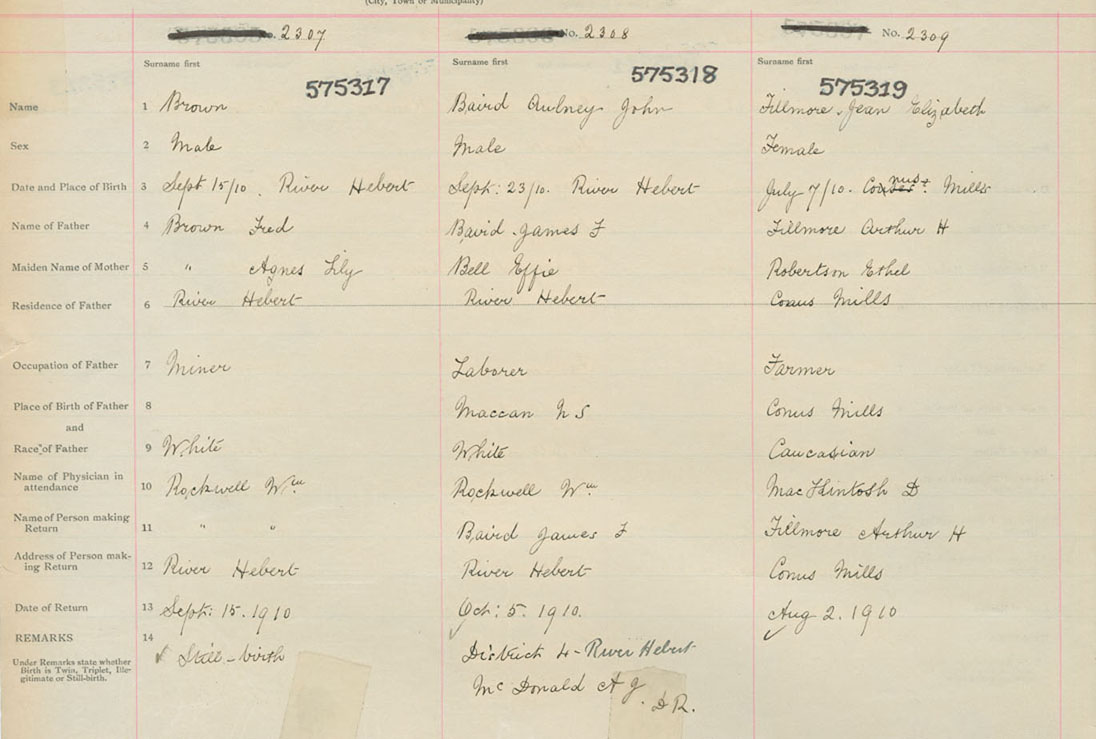 (City, Town or Municipality)
No. 2307 No. 2308 No. 2309
Surname first Surname first Surname first
575317 575318 575319
Name 1 Brown Baird Aulney John Fillmore Jean Elizabeth
Sex 2 Male Male Female
Date and Place of Birth 3 Sept 15/10. River Hebert Sept: 23/10. River Hebert July 7/10. Mills
Name of Father 4 Brown Fred Baird James F Fillmore Arthur H
Maiden Name of Mother 5 " Agnes Lily Bell Effie Robertson Ethel
Residence of Father 6 River Hebert River Hebert Conus Mills
Occupation of Father 7 Miner Laborer Farmer
Place of Birth of Father 8 Maccan N S Conus Mills
and
Race of Father 9 White White Caucasian
Name of Physician in
attendance 10 Rockwell Wm Rockwell Wm MacKintosh D
Name of Person making
Return 11 " " Baird James F Fillmore Arthur H
Address of Person mak-
ing Return 12 River Hebert River Hebert Conus Mills
Date of Return 13 Sept: 15. 1910 Oct: 5. 1910. Aug 2. 1910
REMARKS 14 Still-birth District 4 - River Hebert
Under Remarks state whether
Birth is Twin, Triplet, Ille-
gitimate or Still-birth.
Mc Donald A J.
D R.